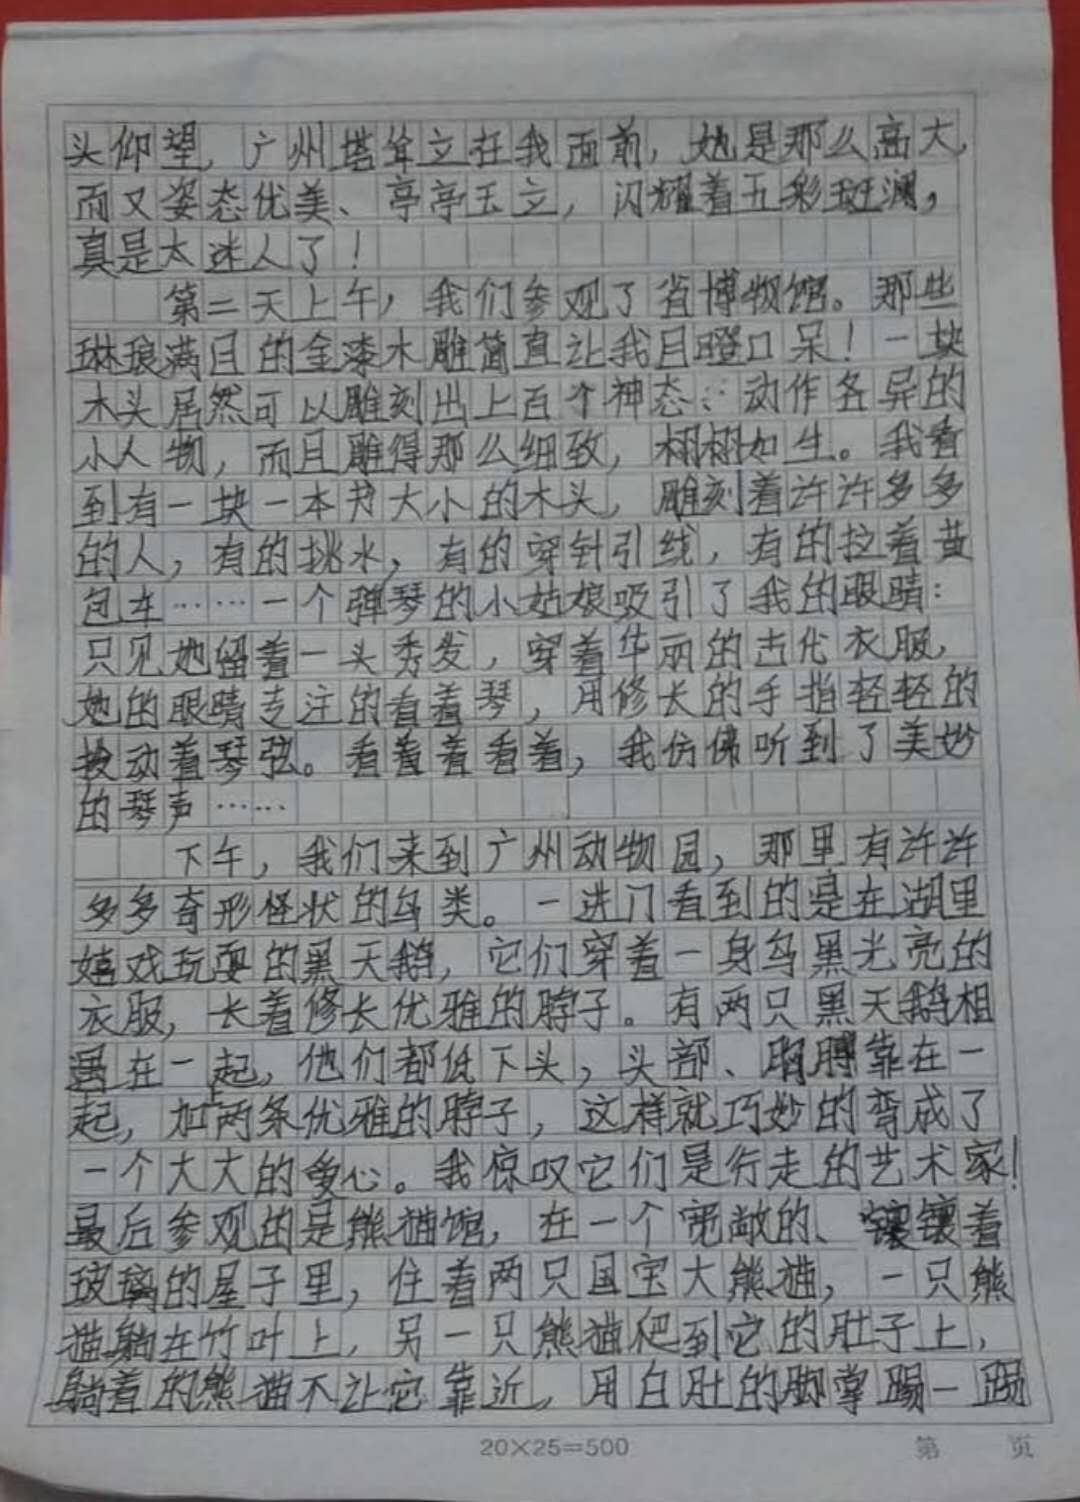 头仰望,广州塔耸立在我面前,她是那么高大,
而又姿态优美、亭亭玉立,闪耀着五彩斑斓,
真是太迷人了!
第二天上午,我们参观了省博物馆。那些
琳琅满目的金漆木雕简直让我目瞪口呆!一块
木头居然可以雕刻出上百个神态、动作各异的
小人物,而且雕得那么细致,栩栩如生。我看
到有一块一本书大小的木头,雕刻着许许多多
的人,有的挑水,有的穿针引线,有的拉着黄
包车……一个弹琴的小姑娘吸引了我的眼睛:
只见她留着一头秀发,穿着华丽的古代衣服,
她的眼睛专注的看着琴,用修长的手指轻轻的
拨动着琴弦。看着着看着,我仿佛听到了美妙
的琴声……
下午,我们来到广州动物园,那里有许许
多多奇形怪状的鸟类。一进门看到的是在湖里
嬉戏玩耍的黑天鹅,它们穿着一身乌黑光亮的
衣服,长着修长优雅的脖子。有两只黑天鹅相
遇在一起,他们都低下头,头部、胸脯靠在一
起,加上两条优雅的脖子,这样就巧妙的弯成了
一个大大的爱心。我惊叹它们是行走的艺术家!
最后参观的是熊猫馆,在一个宽敞的、镶着
玻璃的屋子里,住着两只国宝大熊猫,一只熊
猫躺在竹叶上,另一只熊猫爬到它的肚子上,
躺着的熊猫不让它靠近,用白肚的脚掌踢一踢
20×25=500
第 页